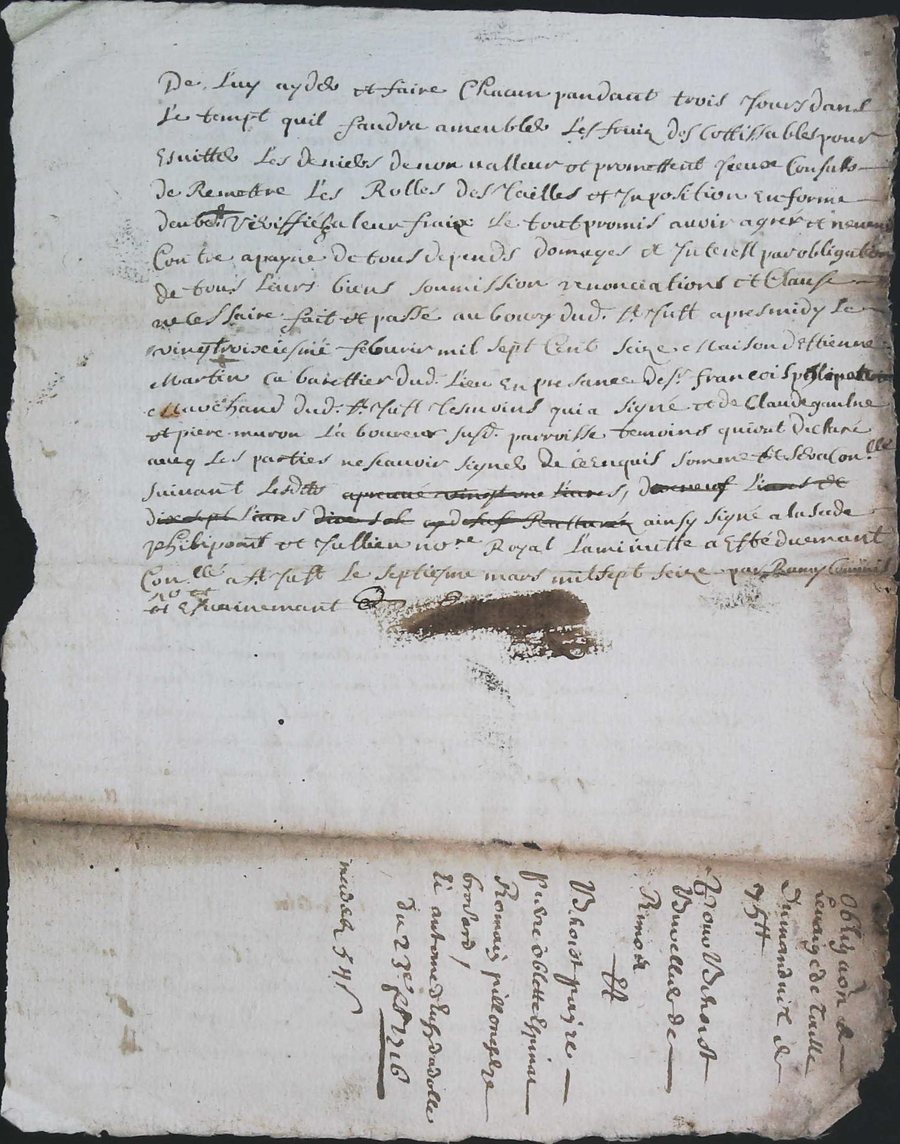 De Luy ayder et faire Chacun pandant trois Jours dans
Le tempt quil faudra ameubler Les fruiz des Cottissables pour
Esvitter Les deniers de non valleur et promettent Iceux Consuls
de Remettre Les Rolles des Tailles et Inposition En forme
a leur fraix Le tout promis avoir agreé et
Contre apayne de tous depends domages et Interest par obligation
de tous Leurs biens soumission renonciations et Clause
necessaire fait et passé au bourg dud. St. Just apres midy Le
vingt troixiesme feburier mil sept Cent Seize Maison dEstienne
Martin Cabarettier dud. Lieu En presance de Sr. francois philipon
Marchand dud. St. Just Tesmoins qui a signé et de Claude gaulne
et piere muron Laboureur susd. parroisse temoins qui ont declaré
avecq Les parties ne scavoir signer de ce Enquis sommé et
suivant Lesdts apreuvé vingt une livres, dixneuf livres de
dixsept livres dix sol ainsy signé a la sede
philipont et Jullien nore Royal La minutte a Esté duemant
Conllé a St. Just Le septiesme mars mil sept seize par Ramy Commis
Obligaon de
Levange de taille
Du manduit de
75tt
Pour Benoist
Vurellier de
Rimor
Et
Benoist payre
piere oblette Estienne
Romain pillon
brosard /
Et antoine
du 23e fr 1716